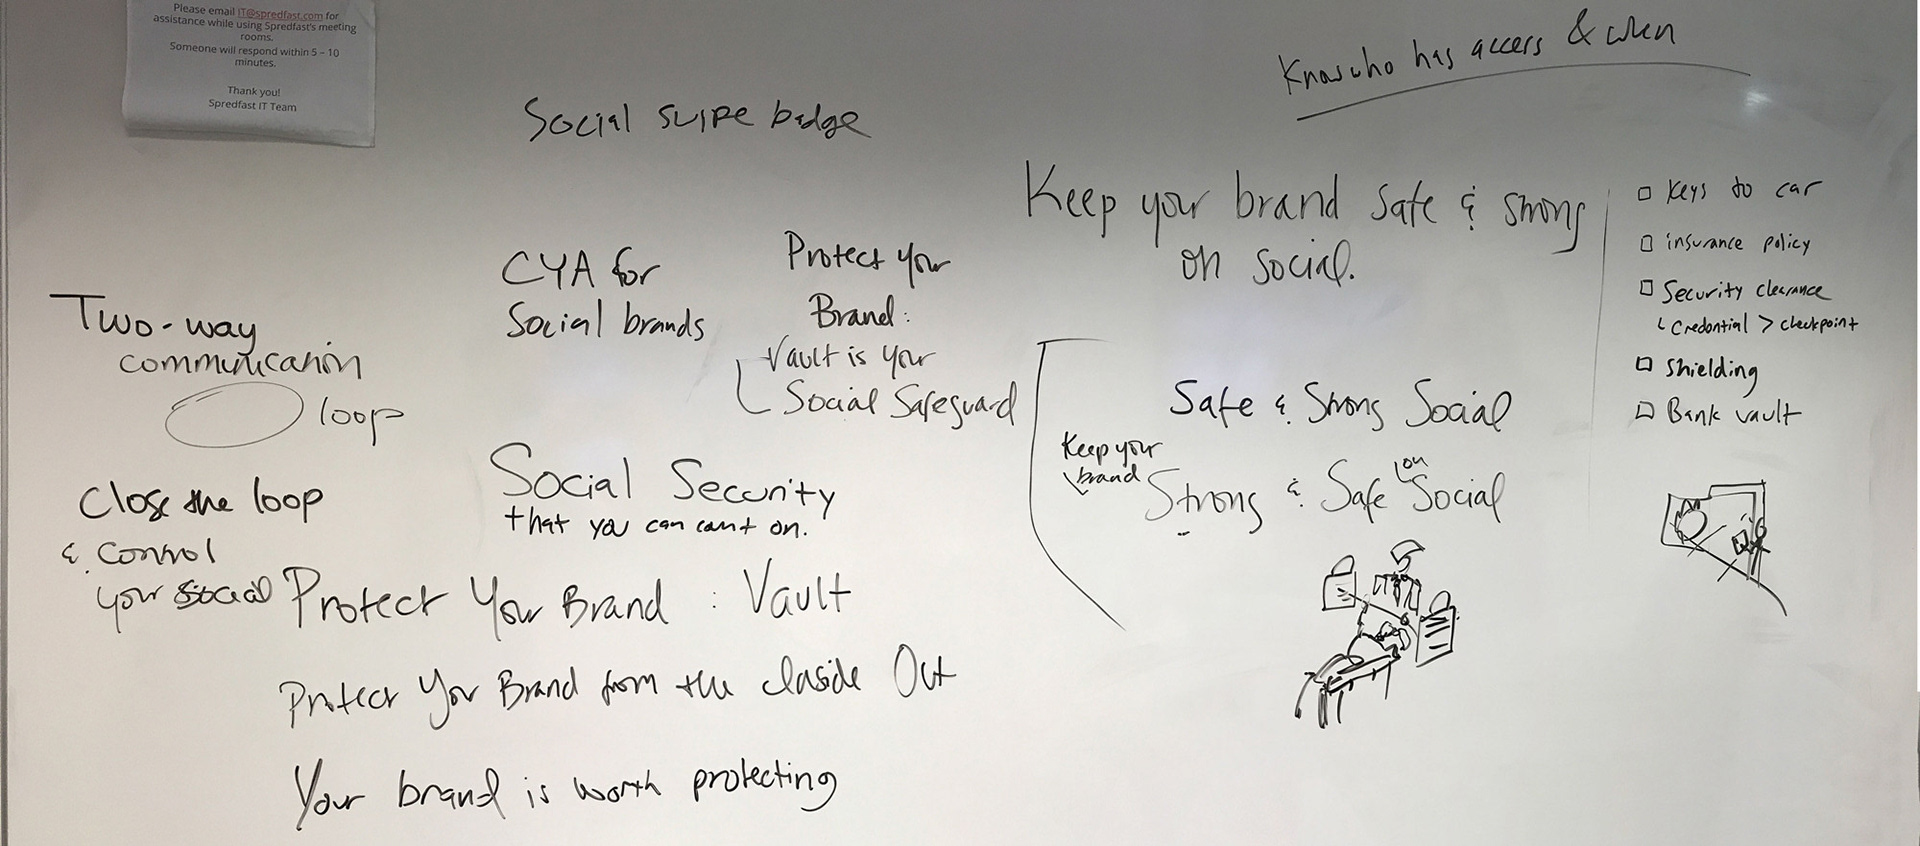 Please email IT@spredfast.com for
assistance while using Spredfast's meeting
rooms.
Someone will respond within 5 – 10
minutes.
Thank you!
Spredfast IT Team
Social swipe badge
Know who has access & when
Two-way
communication
loop
Close the loop
& control
your social
CYA for
Social brands
Protect your
Brand:
Vault is your
Social Safeguard
Social Security
that you can count on.
Protect Your Brand : Vault
Protect Your Brand from the Inside Out
Your brand is worth protecting
Keep your brand safe & strong
on social.
Safe & Strong Social
Keep your
brand
Strong & Safe on Social
keys to car
insurance policy
Security clearance
Credential > checkpoint
Shielding
Bank vault